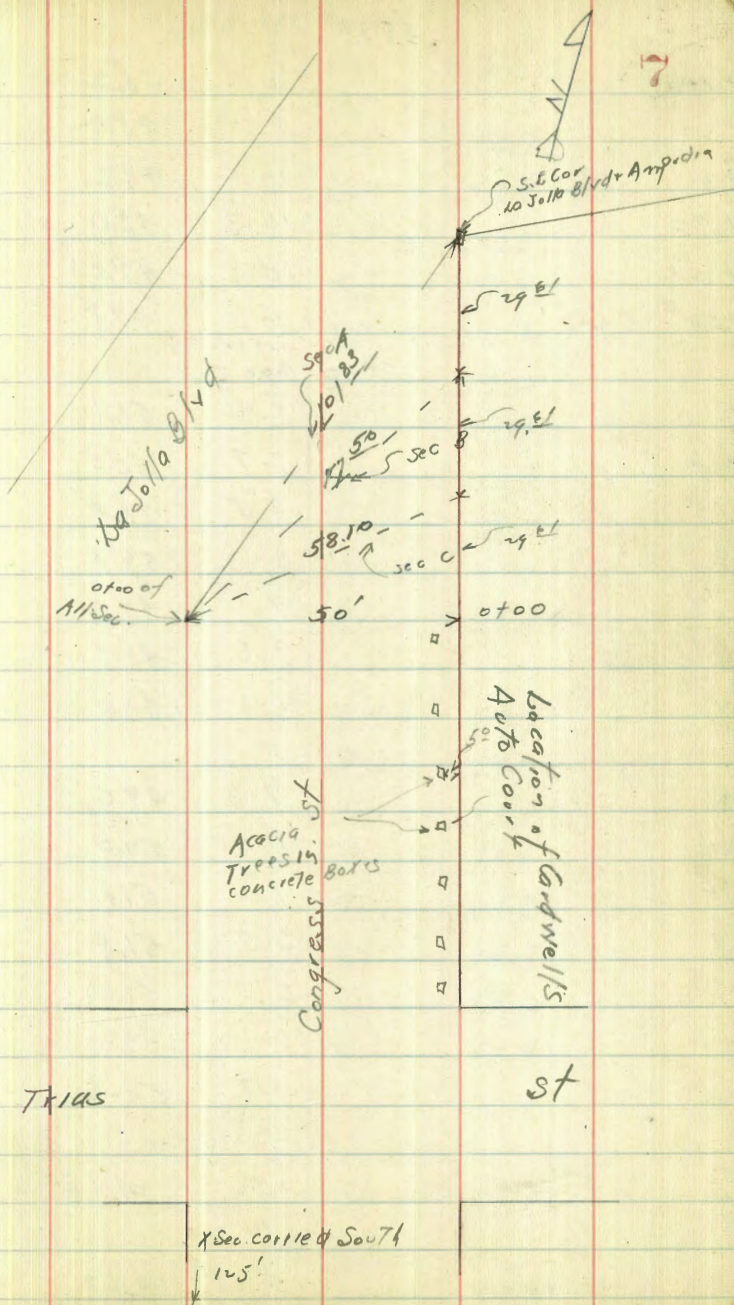 7
N
S.E Cor
La Jolla Blvd + Ampudia
Sec A
101.83
La Jolla Blvd
50
Sec B
58.10
Sec C
0+00 of
All Sec.
50'
0+00
Location of Cardwell's
Auto Court
50
Acacia
Trees in
concrete Boxes
Congress St
Trias
St
X Sec. carried South
125'